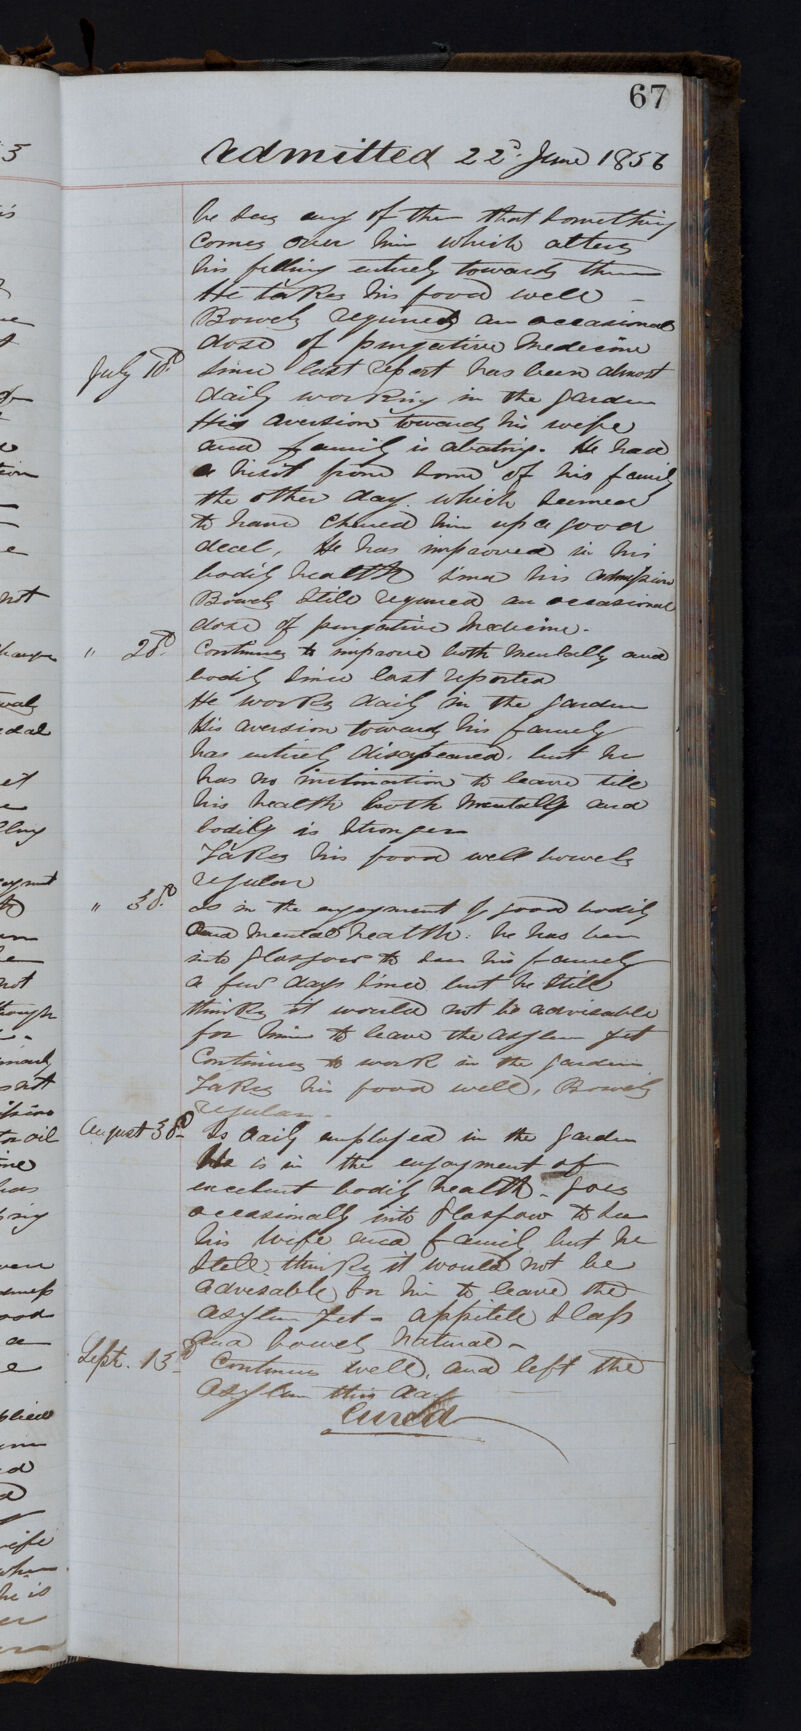 67
Admitted 22d June 1856
he sees any of them that something
comes over him which alters
his feeling entirely towards them
He takes his food well –
Bowels required an occasional
dose of purgative medicine
July 10th Since last report has been almost
daily working in the garden
His aversion towards his wife
and family is abating. He had
a visit from some of his family
the other day. which seemed
to have cheered him up a good
deal, He has improved in his
bodily health since his admission
Bowels still required an occasional
dose of purgative medicine.
" 20th. Continues to improve both mentally and
bodily since last reported
He works daily in the garden
His aversion towards his family
has entirely disapeared, but he
has no inclination to leave till
his health both mentally and
bodily is stronger
Takes his food well bowels
regular
" 30th. as in the enjoyment of good bodily
and mental health. he has been
into Glasgow to see his family
a few days since but he still
thinks it would not be advisable
for him to leave the asylum yet
Continues to work in the garden
Takes his food well, Bowels
regular.
August 30th Is daily employed in the garden
He is in the enjoyment of
excellent bodily health – goes
occasionally into Glasgow to see
his wife and family but he
still thinks it would not be
advisable for him to leave the
asylum yet – appitite sleep
and bowels natural –
Sept. 13th Continues well, and left the
Asylum this day
Cured